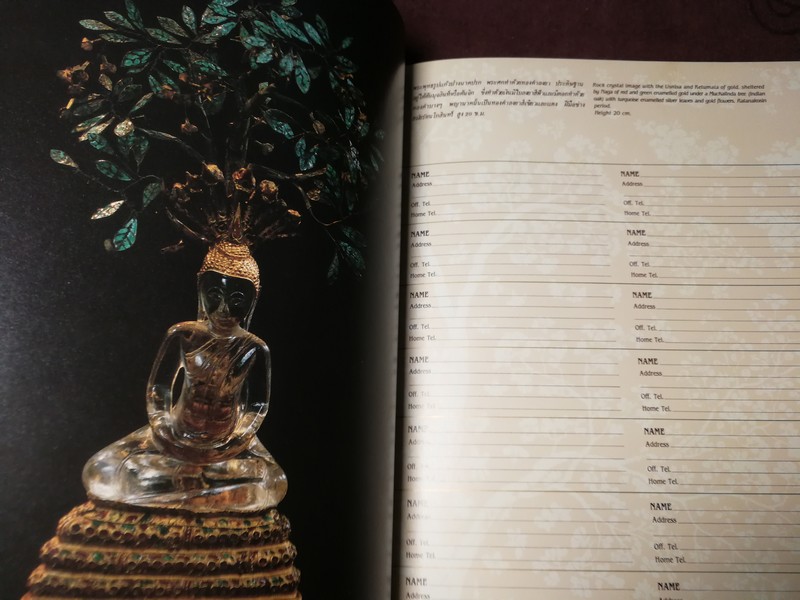 พระพุทธรูปแก้วปางนาคปรก พระเศกทำด้วยทองคำลงยา ประดิษฐาน
สูง 20 ซ.ม.
Rock crystal image with the Usnisa and Ketumala of gold, sheltered
by Naga of red and green enamelled gold under a Muchalinda tree (Indian
oak) with turquoise enamelled silver leaves and gold flowers. Ratanakosin
period.
Height 20 cm.
NAME
Address
Off. Tel.
Home Tel.
NAME
Address
Off. Tel.
Home Tel.
NAME
Address
Off. Tel.
Home Tel.
NAME
Address
Off. Tel.
Home Tel.
NAME
Address
Off. Tel.
Home Tel.
NAME
Address
Off. Tel.
Home Tel.
NAME
NAME
Address
Off. Tel.
Home Tel.
NAME
Address
Off. Tel.
Home Tel.
NAME
Address
Off. Tel.
Home Tel.
NAME
Address
Off. Tel.
Home Tel.
NAME
Address
Off. Tel.
Home Tel.
NAME
Address
Off. Tel.
Home Tel.
NAME
Address